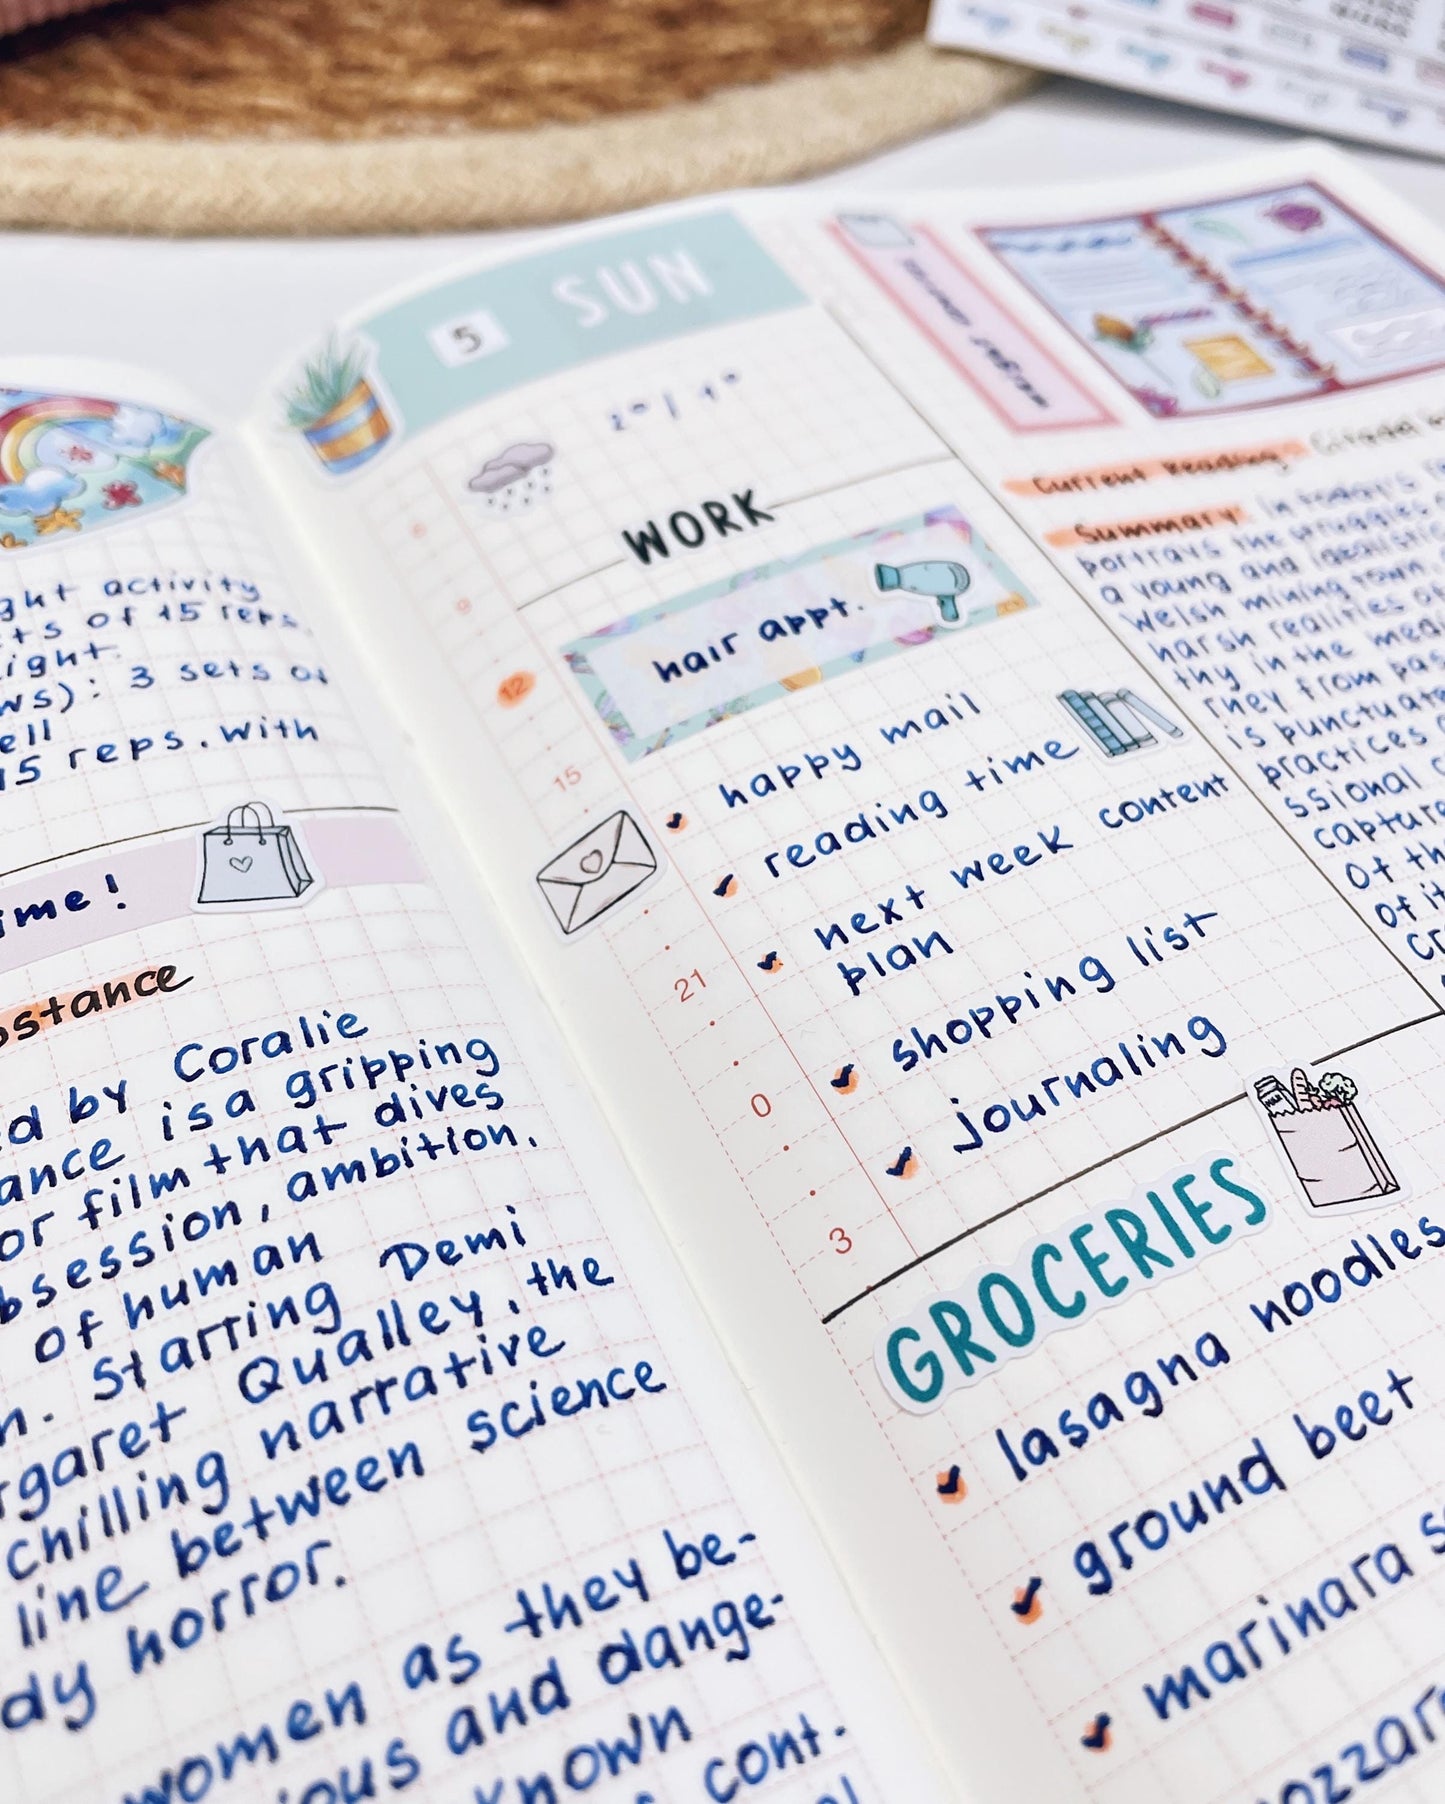 ght activity
ts of 15 reps.
ight.
ws): 3 sets of
ell
15 reps. with
ime!
bstance
ed by Coralie
ance is a gripping
or film that dives
bsession, ambition,
of human
n. Starring Demi
rgaret Qualley, the
chilling narrative
line between science
dy horror.
women as they be-
ious and dange-
known
cont.
5 SUN
WORK
9
12
15
21
0
3
hair appt.
happy mail
reading time
next week content
plan
shopping list
journaling
GROCERIES
lasagna noodles
ground beet
marinara s
ozzar
Current Reading: Citadel
Summary: In today's r
portrays the struggles
a young and idealistic
Welsh mining town.
harsh realities o
thy in the medi
rney from pas
is punctuate
practices
ssional c
capture
of th
of it
cr